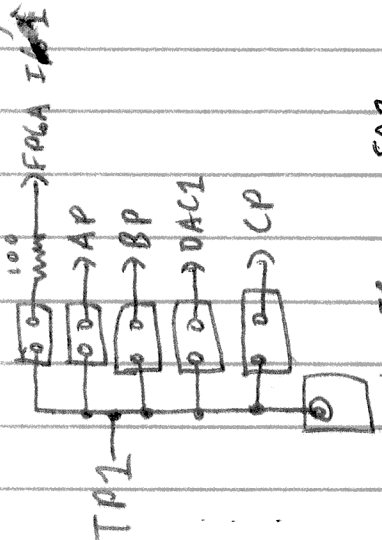 100
FPGA
AP
BP
DAC1
CP
TP1